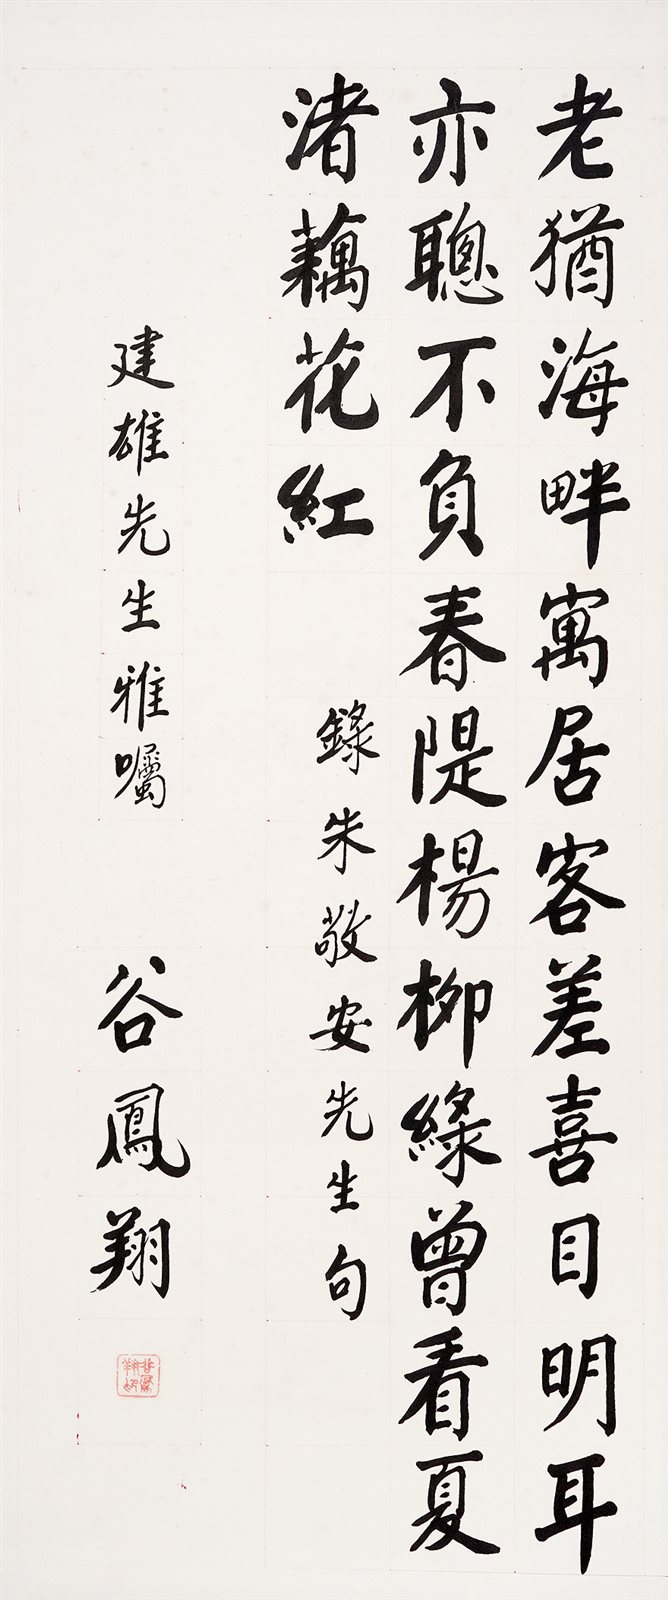 老猶海畔寓居客差喜目明耳
亦聰不負春隄楊柳綠曾看夏
渚藕花紅
錄朱敬安先生句
建雄先生雅囑
谷鳳翔